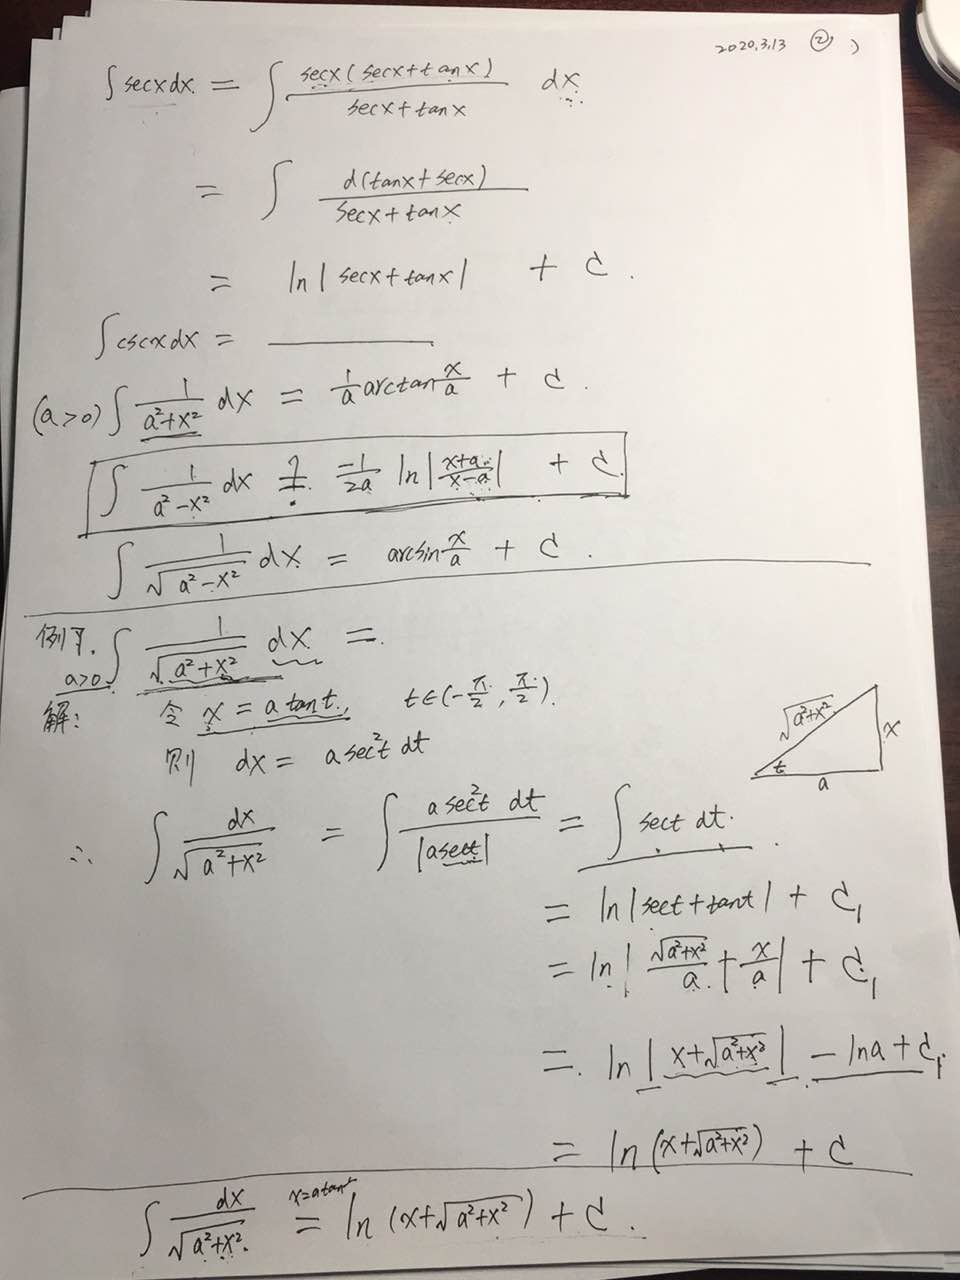 2020.3.13 ②
∫ secx dx = ∫ secx(secx+tanx)/(secx+tanx) dx
= ∫ d(tanx+secx)/(secx+tanx)
= ln|secx+tanx| + C.
∫ cscx dx = ______
(a>0) ∫ 1/(a²+x²) dx = 1/a arctan x/a + C.
∫ 1/(a²-x²) dx = -1/2a ln|(x+a)/(x-a)| + C.
∫ 1/√(a²-x²) dx = arcsin x/a + C.
例7. ∫ 1/√(a²+x²) dx =
a>0
解: 令 x = a tant, t∈(-π/2, π/2).
则 dx = a sec²t dt
√(a²+x²) x t a
∴ ∫ dx/√(a²+x²) = ∫ a sec²t dt/|a sect| = ∫ sect dt.
= ln|sect+tant| + C₁
= ln|√(a²+x²)/a + x/a| + C₁
= ln|x+√(a²+x²)| - lna + C₁
= ln(x+√(a²+x²)) + C
x=atant
∫ dx/√(a²+x²) = ln(x+√(a²+x²)) + C.